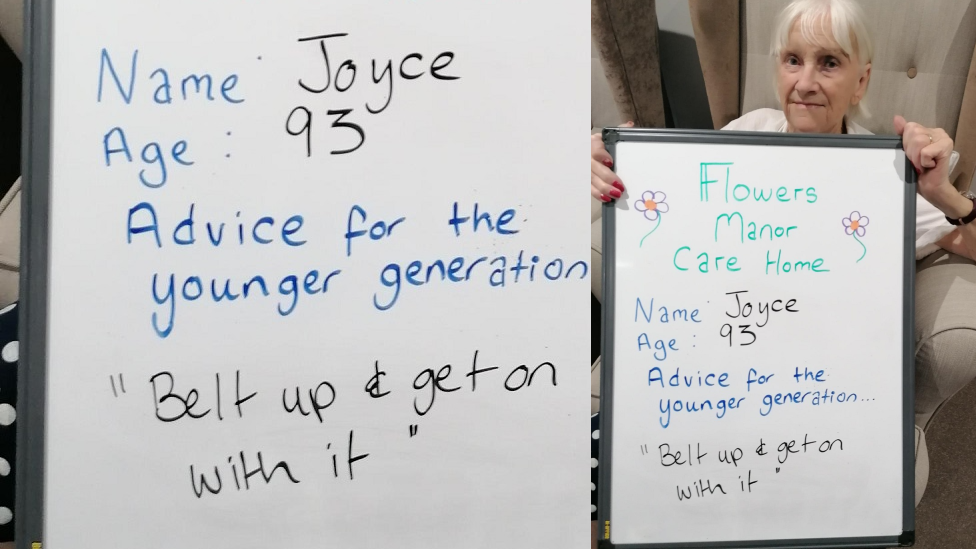 Name: Joyce
Age: 93
Advice for the
younger generation
"Belt up & get on
with it"
Flowers
Manor
Care Home
Name: Joyce
Age: 93
Advice for the
younger generation...
"Belt up & get on
with it"